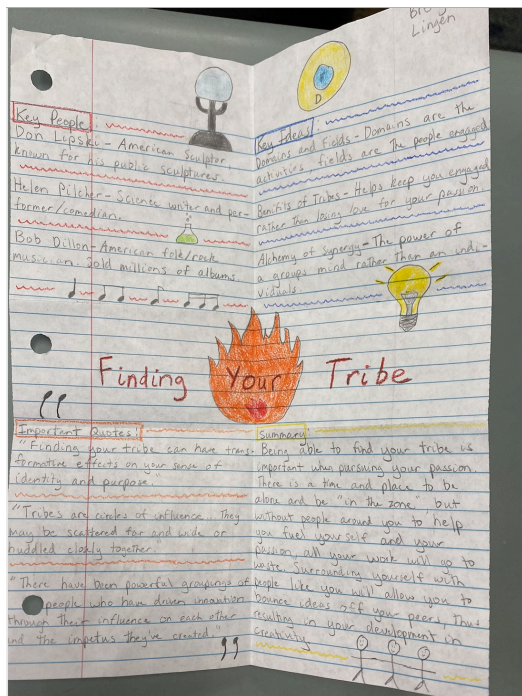 Lingen
Key People:
Don Lipski - American sculptor
known for his public sculptures.
Helen Pilcher - Science writer and per-
former/comedian.
Bob Dillon - American folk/rock
musician. Sold millions of albums.
D
Key Ideas:
Domains and Fields - Domains are the
activities, fields are the people engaged
Benifits of Tribes - Helps keep you engaged
rather than losing love for your passion.
Alchemy of Synergy - The power of
a groups mind rather than an indi-
viduals.
Finding Your Tribe
Important Quotes:
"Finding your tribe can have trans-
formative effects on your sense of
identity and purpose."
"Tribes are circles of influence. They
may be scattered far and wide or
huddled closly together"
"There have been powerful groupings of
people who have driven innovation
through their influence on each other
and the impetus they've created."
Summary:
Being able to find your tribe is
important when pursuing your passion.
There is a time and place to be
alone and be "in the zone", but
without people around you to help
you fuel yourself and your
passion, all your work will go to
waste. Surrounding yourself with
people like you will allow you to
bounce ideas off your peers, thus
resulting in your development in
creativity.